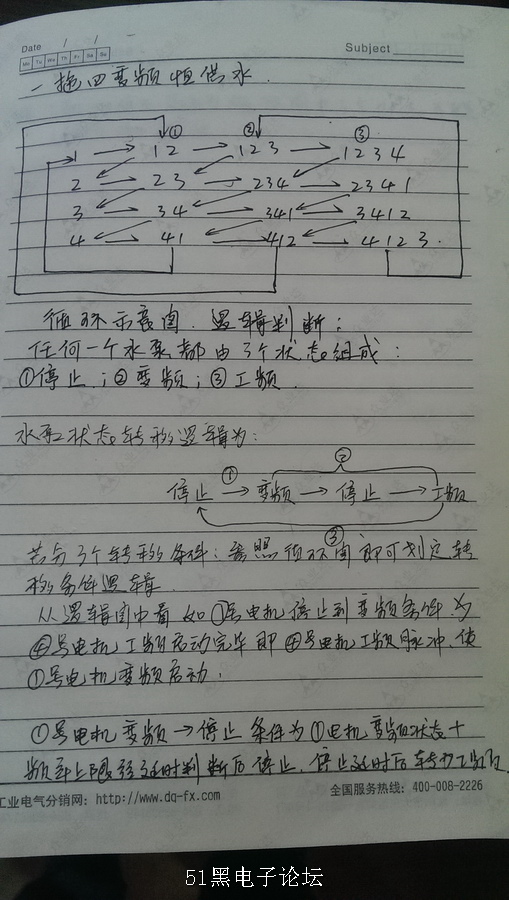 Date / /
Subject
Mo Tu We Th Fr Sa Su
一拖四变频恒供水.
① ② ③
1 → 12 → 123 → 1234
2 → 23 → 234 → 2341
3 → 34 → 341 → 3412
4 → 41 → 412 → 4123.
循环示意图. 逻辑判断:
任何一个水泵都由3个状态组成:
①停止; ②变频; ③工频.
水泵状态转移逻辑为:
②
①
停止 → 变频 → 停止 → 工频
③
共有3个转移条件: 参照循环图即可划定转
移条件逻辑.
从逻辑图中看 如①号电机停止到变频条件为
④号电机工频启动完毕即④号电机工频脉冲, 使
①号电机变频启动.
①号电机变频→停止条件为①电机变频状态+
频率上限经延时判断后停止. 停止延时后转为工频.
工业电气分销网: http://www.dq-fx.com
全国服务热线: 400-008-2226
51黑电子论坛